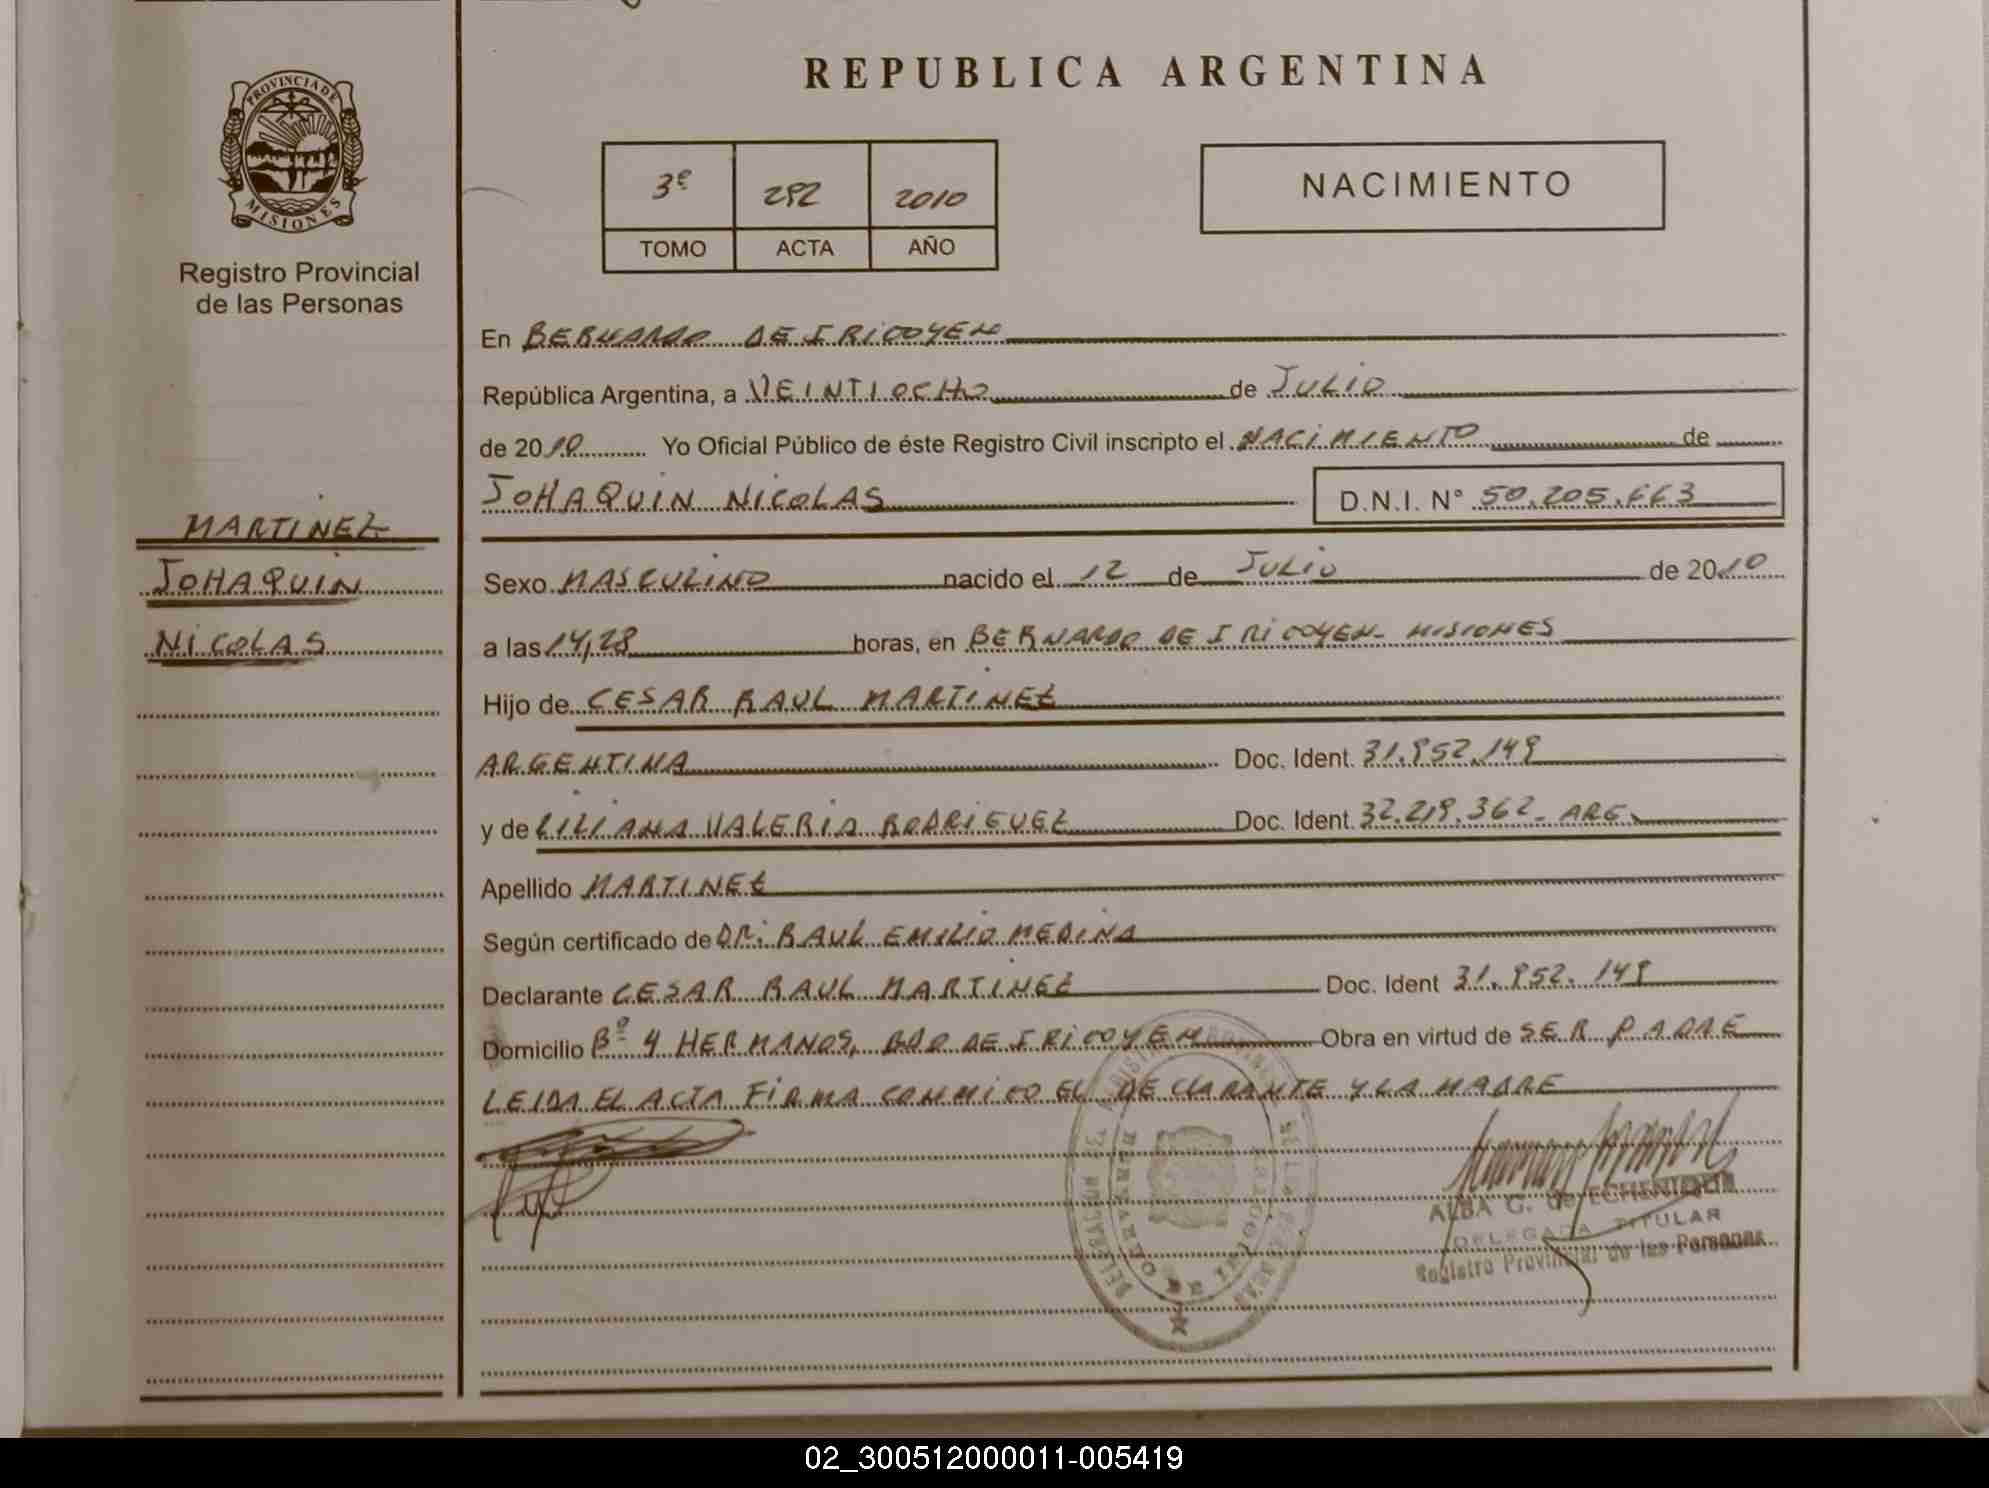 PROVINCIA DE
MISIONES
Registro Provincial
de las Personas
MARTINEZ
JOHAQUIN
NICOLAS
REPUBLICA ARGENTINA
3º 292 2010
TOMO ACTA AÑO
NACIMIENTO
En BERNARDO DE IRIGOYEN
República Argentina, a VEINTIOCHO de JULIO
de 2010 Yo Oficial Público de éste Registro Civil inscripto el NACIMIENTO de
JOHAQUIN NICOLAS D.N.I. N° 50.205.663
Sexo MASCULINO nacido el 12 de JULIO de 2010
a las 14,28 horas, en BERNARDO DE IRIGOYEN - MISIONES
Hijo de CESAR RAUL MARTINEZ
ARGENTINA Doc. Ident. 31.952.149
y de LILIANA VALERIA RODRIGUEZ Doc. Ident. 32.219.362 - ARG.
Apellido MARTINEZ
Según certificado de DR. RAUL EMILIO MEDINA
Declarante CESAR RAUL MARTINEZ Doc. Ident 31.952.149
Domicilio Bº 4 HERMANOS, BDO DE IRIGOYEN Obra en virtud de SER PADRE
LEIDA EL ACTA FIRMA CONMIGO EL DECLARANTE Y LA MADRE
BERNARDO DE IRIGOYEN
ALBA G. de
DELEGADA TITULAR
Registro Provincial de las Personas
02_300512000011-005419